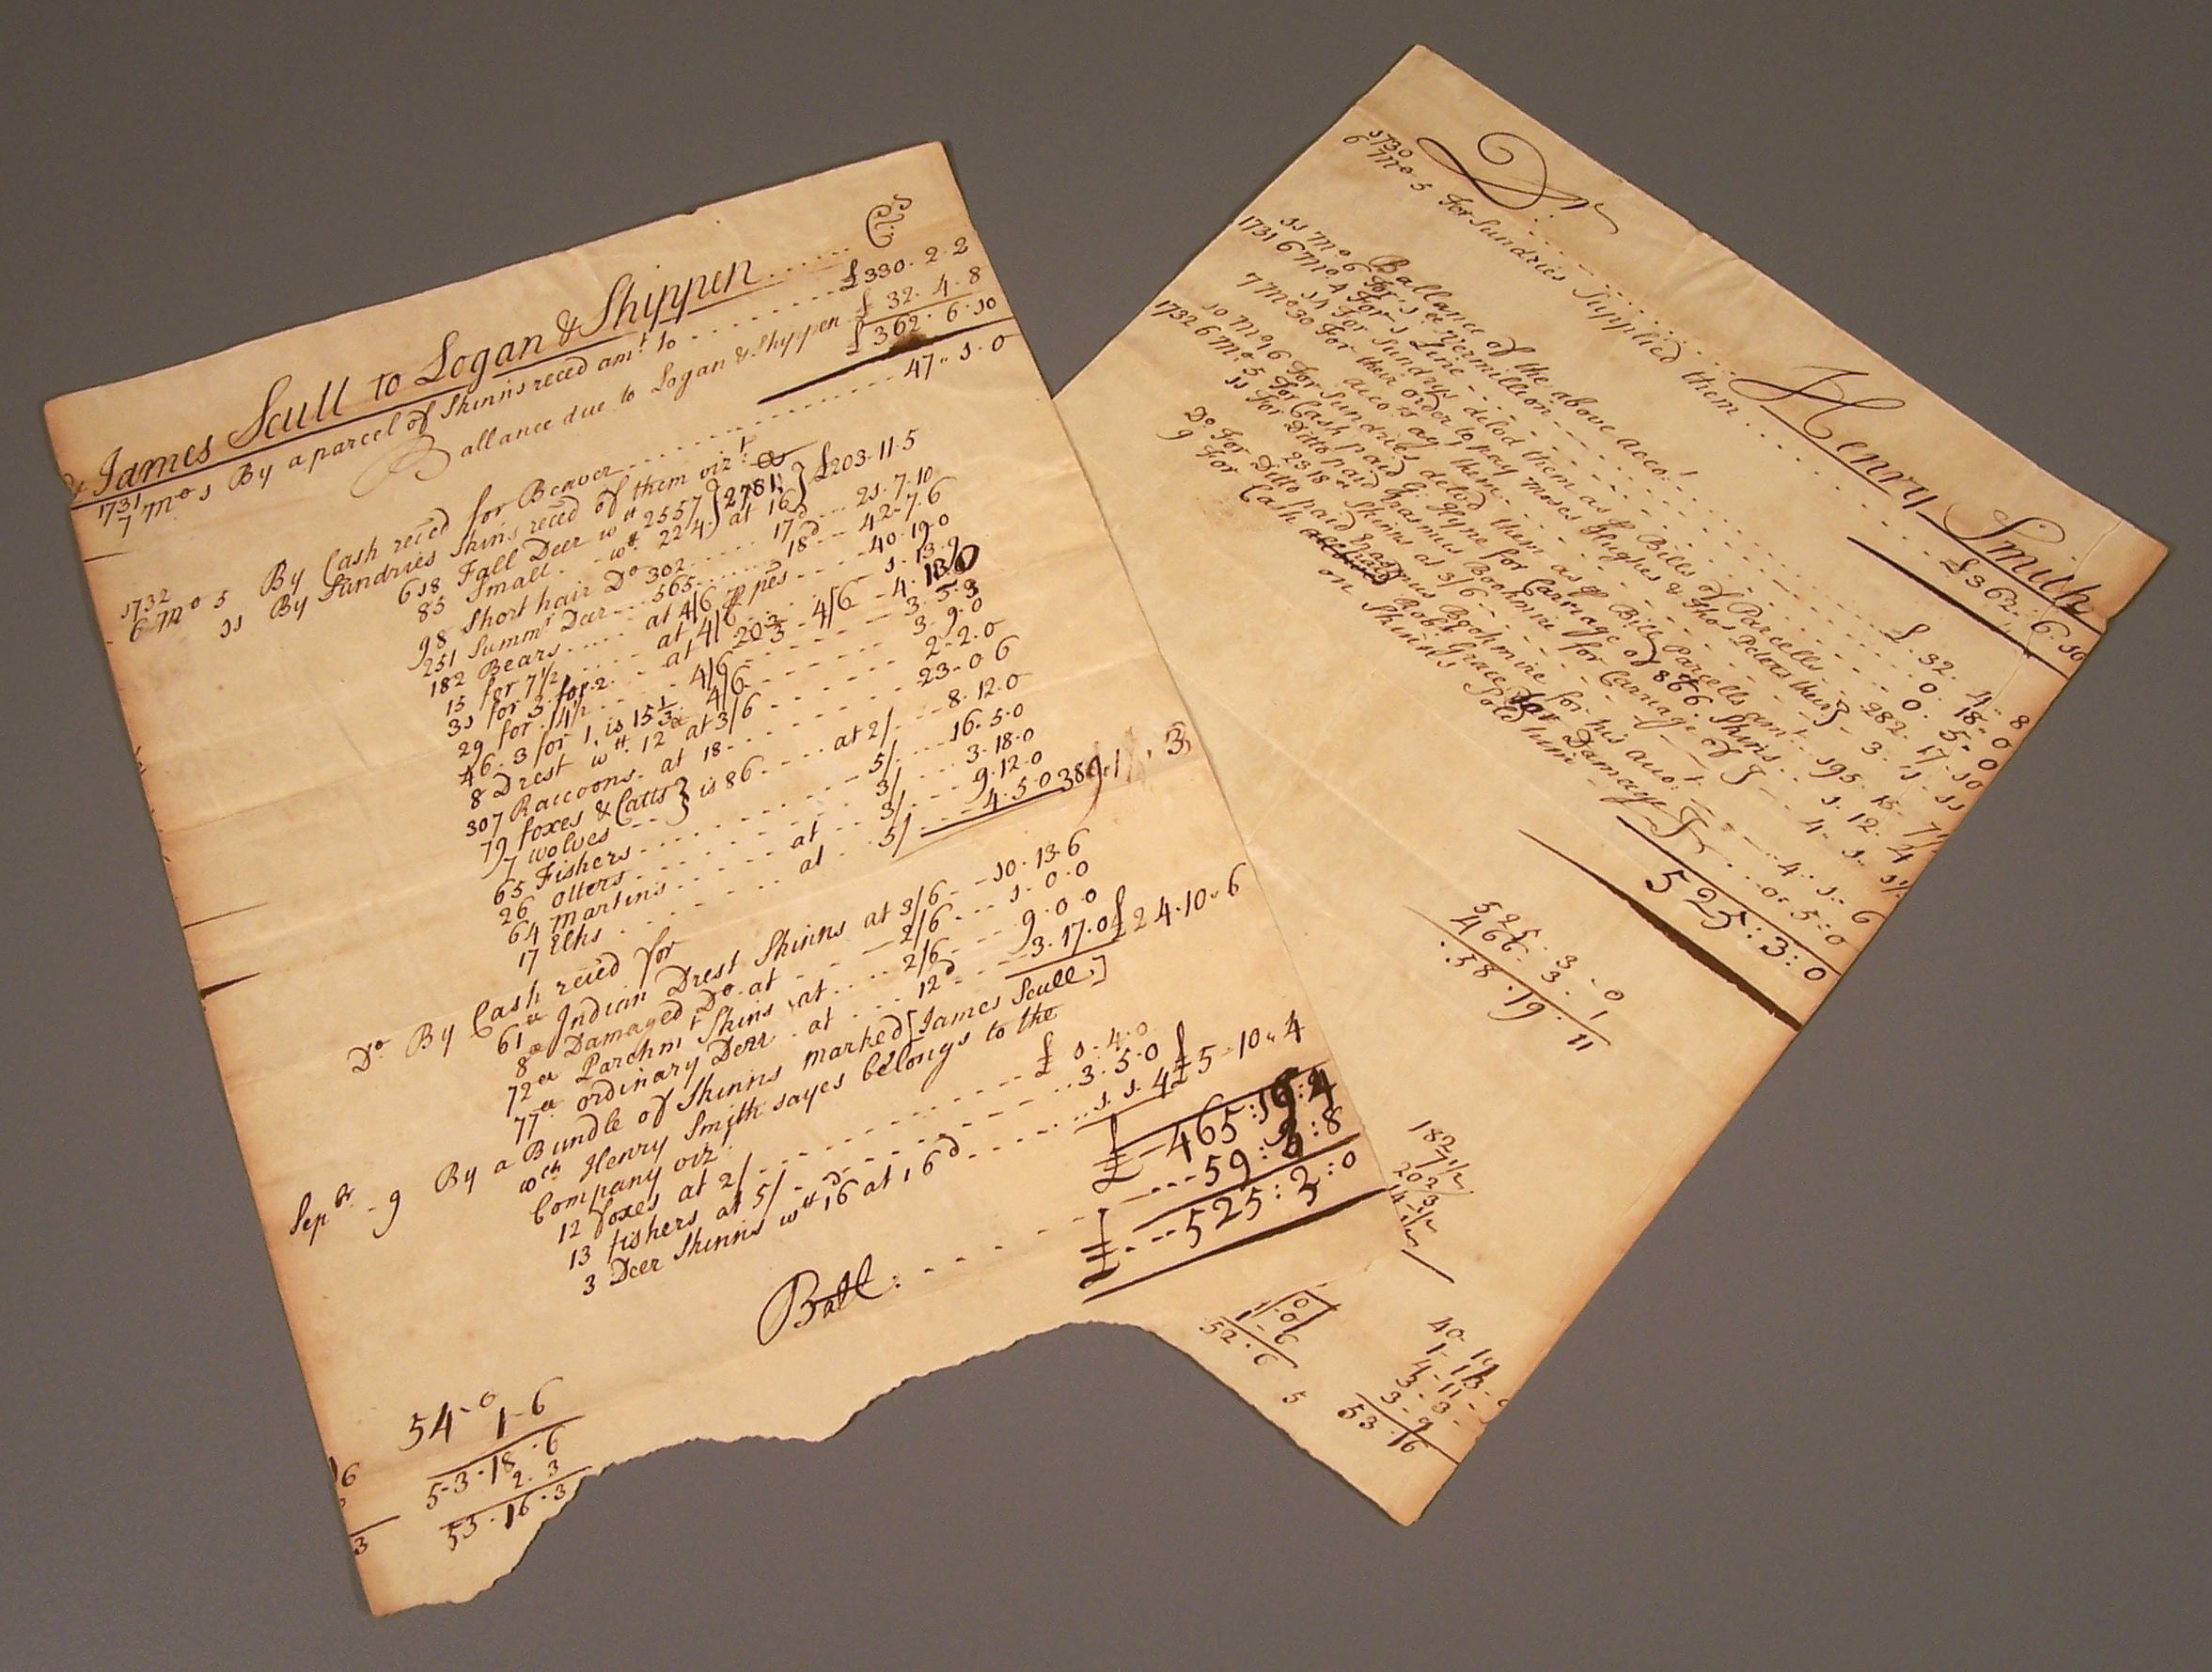 & James Scull to Logan & Shippen ...... Crs
1731
7 mo 1 By a parcel of Skinns reced amt. to ........ £330. 2. 2
Ballance due to Logan & Shippen £ 32. 4. 8
£362. 6. 10
1732
6 mo 5 By Cash reced for Beaver ........ 47" 1. 0
11 By Sundries Skins reced of them viz:t
618 Fall Deer wtt 2557 } 2781 } £203. 11. 5
85 Small .. wtt. 224 } at 16
98 Short hair Do 302 ..... 17d ... 21. 7. 10
251 Summr Deer -- 565 ..... 18d ... 42. 7. 6
182 Bears ..... at 4/6 ... 40. 19. 0
15 for 7 1/2 ..... at 4/6 ... 1. 13. 9
31 for 3 for 2 .. at 20 2/3 - 4/6 - 4.
29 for 14 1/2 .... 4/6 ----- 3. 5. 3
46. 3 for 1, is 15 1/3. 4/6 ----- 3. 9. 0
8 Drest wtt. 12 a at 3/6 ----- 2. 2. 0
307 Raccoons. at 18 ----- 23. 0. 6
79 foxes & Catts } is 86 .... at 2/ ... 8. 12. 0
7 wolves --- }
65 Fishers ------ 5/ ... 16. 5. 0
26 otters ------ 3/ ... 3. 18. 0
64 martins ..... at .. 3/ ... 9. 12. 0
17 Elks ..... at .. 5/ ... 4. 5. 0 389.
Do By Cash reced for
61 a Indian Drest Skinns at 3/6 -- 10. 13. 6
8 a Damaged Do. at --- 2/6 --- 1. 0. 0
72 a Parchmt Skins at .... 2/6 ---- 9. 0. 0
77 a ordinary Deer . at ... 12d ---- 3. 17. 0 £24. 10. 6
Sepbr - 9 By a Bundle of Skinns marked [James Scull]
wch Henry Smith sayes belongs to the
Company viz
12 foxes at 2/ -------- £ 1. 4. 0
13 fishers at 5/ ------- 3. 5. 0
3 Deer Skinns wtt 16 at 16d ..... 1. 1. 4 £5. 10. 4
£ - 465:16:4
Ball: ------ 59: :8
£ -- 525:3:0
54 - 0
1 - 6
53 - 18 - 6
2. 3
53. 16. 3
6
3
Dr ........ Henry Smith
1730
6 mo 5 For Sundries Supplied them ........ £362. 6. 10
Ballance of the above acco:t ........ £. 32. 4" 8
11 mo 6 For 1 a Vermillion ........ 0. 18" 0
1731 6 mo 4 For 1 Line ........ 0. 5" 0
11 For Sundrys delod them as P Bills of Parcells .. 282. 17. 10
7 mo 30 For their order to pay Moses Hughes & Thos Peters their } 3. 11. 11
acco is agt them
10 mo 16 For Sundries delod them as P Bill Parcells amt. 195.
1732 6 mo. 5 For Cash paid G: Hyne for Carriage of 866 Skins .. 1. 12. 4
11 For Ditto paid Erasmus Boehmire for Carriage of } 4. 1.
2318 a Skinns at 3/6
Do For Ditto paid Erasmus Boehmire for his acco:t ..... 4. 1. 6
9 For Cash Robt Grace for Damage } ... 0. 5. 0
on Skinns Sold him
525:3:0
525. 3. 0
466. 3. 1
:58. 19. 11
182
7 1/2
20 2/3
14 1/2
1 - 6
52. 6
5
40 19
1 - 13 -
4 - 11 -
3 - 3 -
3 - 9
53. 16